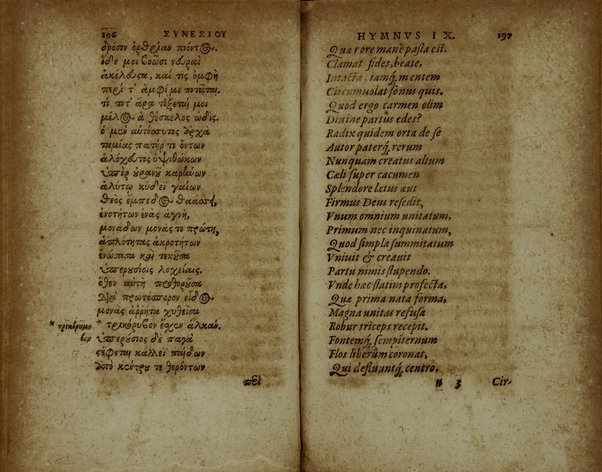 196 ΣΥΝΕΣΙΟΥ
δρόσον ὀρθρίαν πιόντος.
ἴδε μοι βοῶσι νευραὶ
ἀκέλευστα, καὶ τὶς ὀμφὴ
περί τ' ἀμφί με ποτᾶται.
τί ποτ' ἄρα τέξεταί μοι
μέλος ἁ θέσκελος ὠδίς.
ὁ μὲν αὐτόσσυτος ἀρχὰ
ταμίας πατήρ τε ὄντων
ἀλόχευτος ὑψιθώκων
ὑπὲρ οὐρανοῦ καρήνων
ἀλύτῳ κύδεϊ γαίων
θεὸς ἔμπεδος θαάσσει,
ἑνοτήτων ἑνὰς ἁγνὴ,
μονάδων μονάς τε πρώτη,
ἁπλότητας ἀκροτήτων
ἑνώσασα καὶ τεκοῦσα
ὑπερουσίοις λοχείαις.
ὅθεν αὐτὴ προθοροῦσα
διὰ πρωτόσπορον εἶδος
μονὰς ἄῤῥητα χυθεῖσα
* τρικόρυμβον * τρικόρυβον ἔχεν ἀλκάν.
ὑπερούσιος δὲ παγὰ
στέφεται κάλλεϊ παίδων
ἀπὸ κέντρου τε θορόντων
περὶ
HYMNVS IX. 197
Quæ rore manè pasta est.
Clamat fides, beate,
Intacta, iamq́; mentem
Circumuolat sonus quis.
Quod ergo carmen olim
Diuine partus edes?
Radix quidem orta de se
Autor paterq́; rerum
Nunquam creatus altum
Cæli super cacumen
Splendore lætus æui
Firmus Deus resedit,
Vnum omnium unitatum,
Primum nec inquinatum,
Quod simpla summitatum
Vniuit & creauit
Partu nimis stupendo.
Vnde hæc statim profecta,
Qua prima nata forma,
Magna unitas refusa
Robur triceps recepit.
Fontemq́; sempiternum
Flos liberûm coronat,
Qui defluantq́; centro,
n 3 Cir-